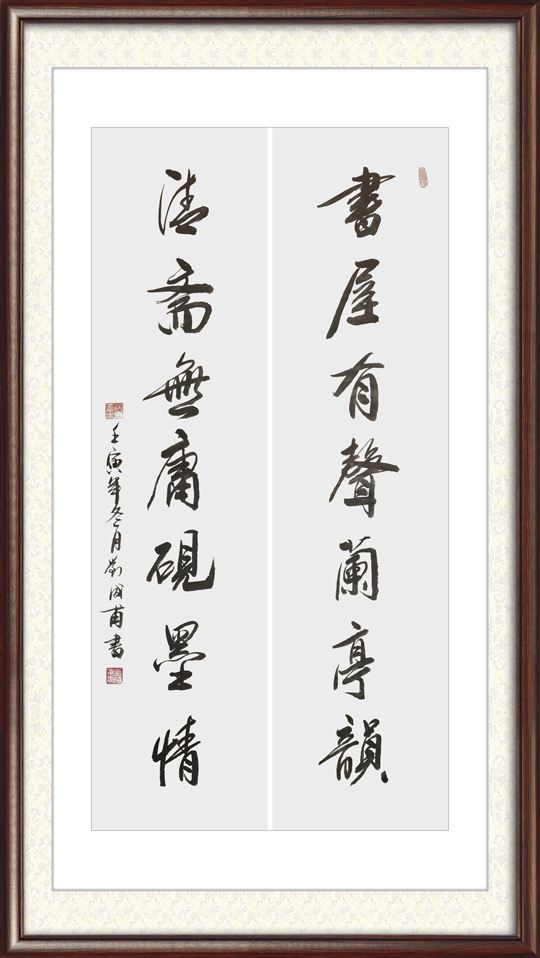 書屋有聲蘭亭韻
清斋無庸硯墨情
壬寅年冬月劳成甫書